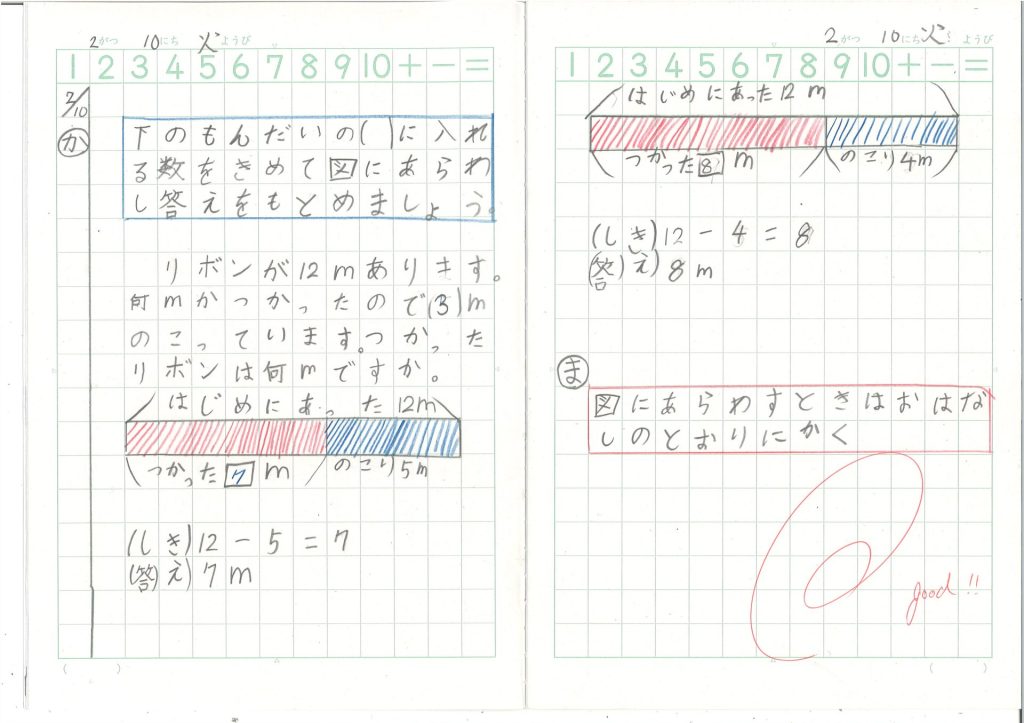 2がつ 10にち 火ようび
1 2 3 4 5 6 7 8 9 10 + − =
2/10
か
下のもんだいの( )に入れ
る数をきめて図にあらわ
し答えをもとめましょう。
リボンが12mあります。
何mかつかったので(3)m
のこっています。つかった
リボンは何mですか。
はじめにあった12m
つかった7m のこり5m
(しき)12−5=7
(答え)7m
2がつ 10にち 火ようび
1 2 3 4 5 6 7 8 9 10 + − =
はじめにあった12m
つかった8m のこり4m
(しき)12−4=8
(答え)8m
ま
図にあらわすときはおはな
しのとおりにかく
good!!